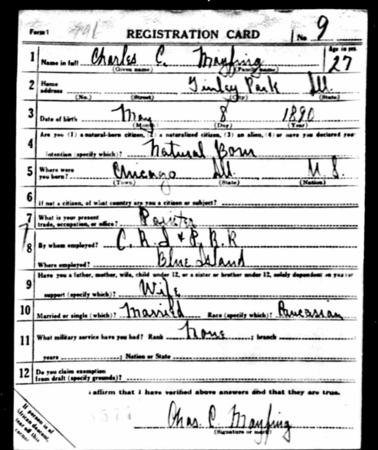 Form 1 REGISTRATION CARD No. 9
1 Name in full Charles C. Mayfing Age in yrs. 27
(Given name) (Family name)
2 Home address Tinley Park Ill.
(No.) (Street) (City) (State)
3 Date of birth May 8 1890
(Month) (Day) (Year)
4 Are you (1) a natural-born citizen, (2) a naturalized citizen, (3) an alien, (4) or have you declared your
intention (specify which)? Natural Born
5 Where were you born? Chicago Ill. U. S.
(Town) (State) (Nation)
6 If not a citizen, of what country are you a citizen or subject?
7 What is your present trade, occupation, or office? Painter
8 By whom employed? C. R. I. & P. R. R
Where employed? Blue Island
9 Have you a father, mother, wife, child under 12, or a sister or brother under 12, solely dependent on you for
support (specify which)? Wife
10 Married or single (which)? Married Race (specify which)? Caucasian
11 What military service have you had? Rank None ; branch
years ; Nation or State
12 Do you claim exemption from draft (specify grounds)?
I affirm that I have verified above answers and that they are true.
Chas. C. Mayfing
(Signature or mark)
If person is of African descent, tear off this corner